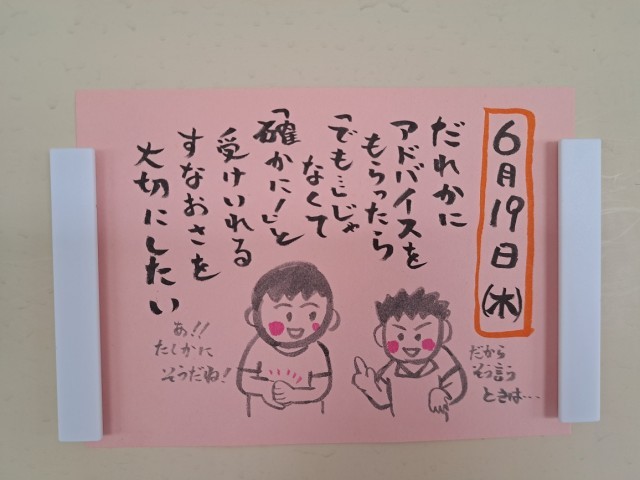 6月19日(木)
だれかに
アドバイスを
もらったら
「でも…」じゃ
なくて
「確かに!」と
受けいれる
すなおさを
大切にしたい
だから
そう言う
ときは…
あ!!
たしかに
そうだね!